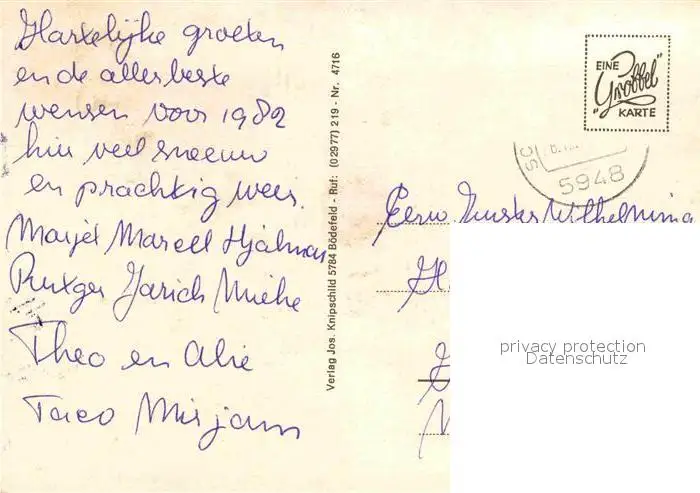 Hartelijke groeten
en de allerbeste
wensen voor 1982
hier veel sneeuw
en prachtig weer.
Marjet Marcell Hjalmar
Rutger Jarich Mieke
Theo en Alie
Taco Mirjam
Verlag Jos. Knipschild 5784 Bödefeld - Ruf: (02977) 219 - Nr. 4716
EINE
"Grobbel"
KARTE
5948
Eerw Zuster Wilhelmina
privacy protection
Datenschutz